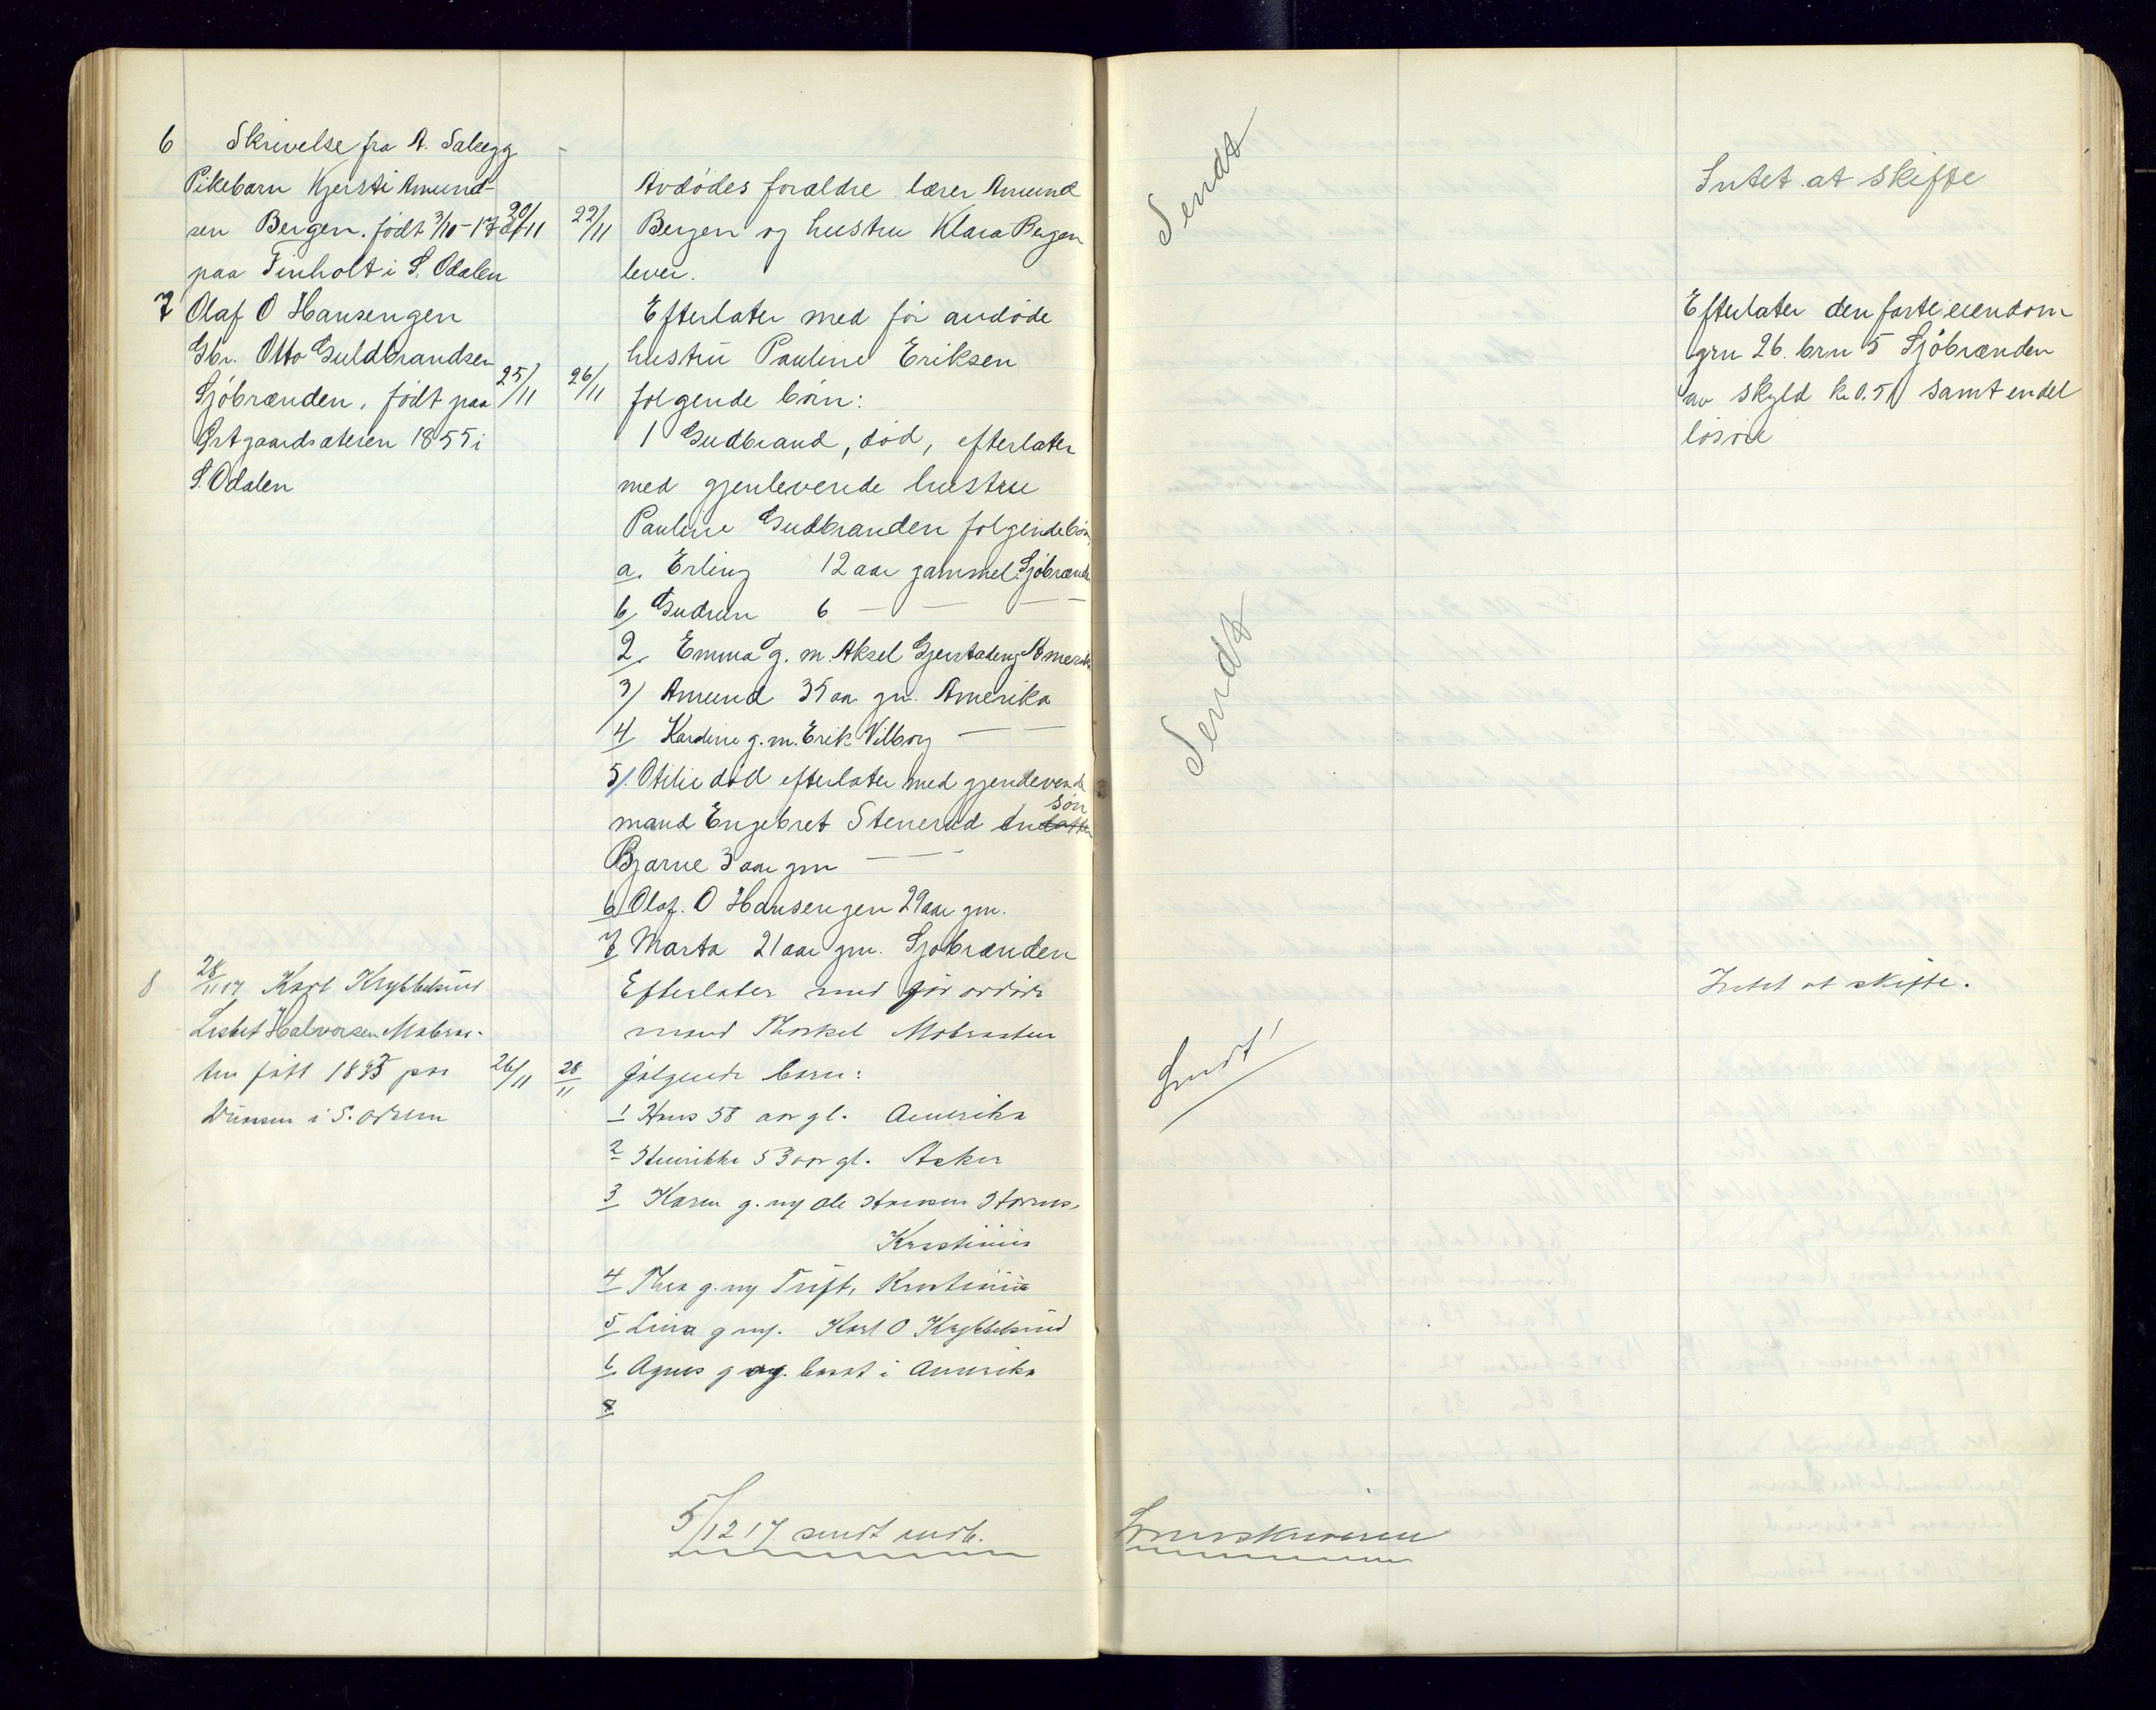 6 Skrivelse fra A. Salegg
Pikebarn Kjersti Amund-
sen Bergen. født 3/10-17 20/11 22/11
paa Finholt i S. Odalen
Avdødes forældre lærer Amund
Bergen og hustru Klara Bergen
lever.
Sendt
Intet at skifte
7 Olaf O Hansengen
Gbr. Otto Guldbrandsen
Sjöbrænden, født paa 25/11 26/11
Ørtgaardsæteren 1855 i
S. Odalen
Efterlater med før avdøde
hustru Pauline Eriksen
følgende børn:
1 Gudbrand, død, efterlater
med gjenlevende hustru
Pauline Gudbranden følgende børn
a. Erling 12 aar gammel. Sjöbrænden
b, Gudrun 6 — — — —
2. Emma g. m. Aksel Gjerstadeng Amerika
3) Amund 35 aar gm. Amerika
4 Kardine g. m. Erik Vilborg — —
5). Otilie død efterlater med gjenlevende
søn
mand Engebret Stenerud en datter
Bjarne 3 aar gm — —
6 Olaf. O Hansengen 29 aar gm.
7 Marta 21 aar gm. Sjøbrænden
Sendt
Efterlater den faste eiendom
grn 26. brn 5 Sjöbrænden
av skyld kr 0.51 samt endel
løsøre
8 28/11 17 Karl Krybbelsrud
Lisbet Halvorsen Mobraa-
ten født 1835 paa 26/11 28/11
i S. Odalen
Efterlater med før avdøde
mand Thorkel Mobraaten
følgende barn:
1 Hans 58 aar gl. Amerika
2 Henrikke 53 aar gl. Asker
3 Karen g. m Ole Hansen
Kristiania
4 Thea g. m Kristiania
5 Lina g m. Karl O Krybbelsrud
6 Agnes g og bosat i Amerika
7
Sendt!
Intet at skifte.
5/12 17 sendt indb.
Sorenskriveren